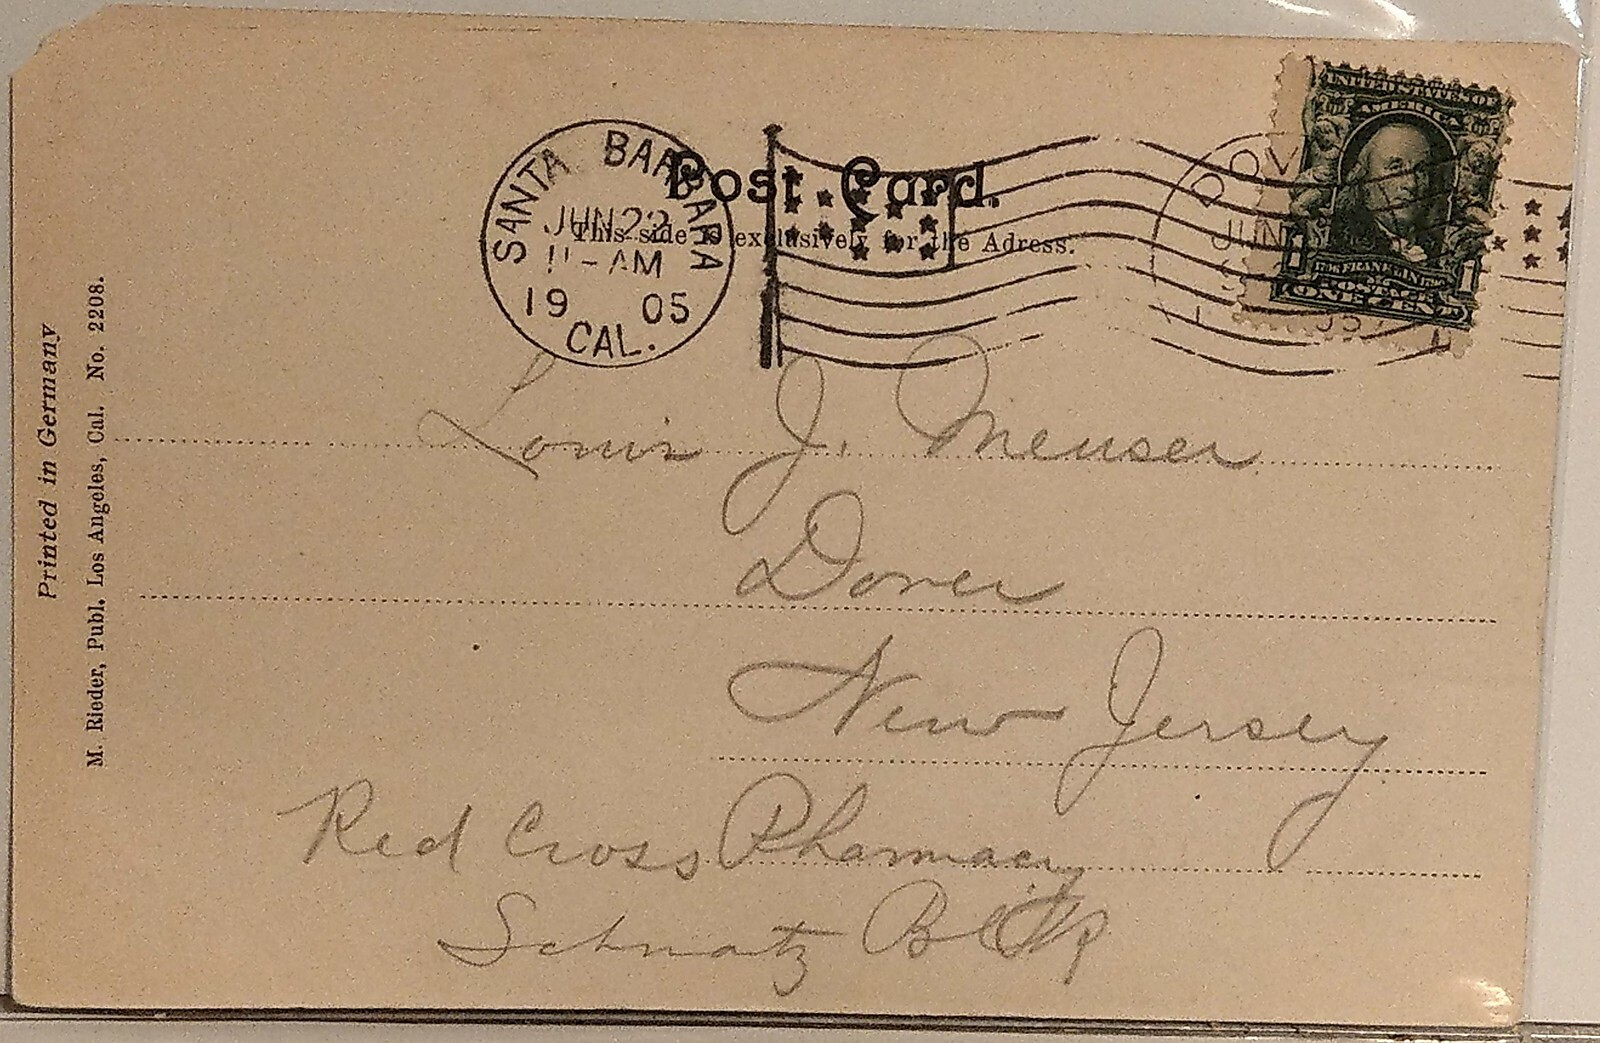 Post Card.
This side is exclusively for the Adress.
SANTA BARBARA
JUN 22
11-AM
19 05
CAL.
DOV
JUN
UNITED STATES OF
AMERICA
1 FRANKLIN 1
POSTAGE
ONE CENT
Louis J. Meuser
Dover
New Jersey
Red Cross Pharmacy
Schnatz Bl'k
Printed in Germany
M. Rieder, Publ. Los Angeles, Cal. No. 2208.